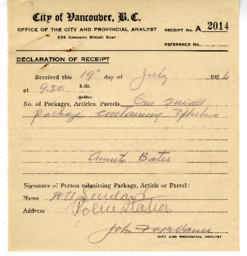 City of Vancouver, B.C.
OFFICE OF THE CITY AND PROVINCIAL ANALYST
RECEIPT NO. A 2014
236 CORDOVA STREET EAST
REFERENCE NO.
DECLARATION OF RECEIPT
Received this 19th day of July 1926
at 930 A.M.
P.M.
No. of Packages, Articles, Parcels One small
Package containing
Bates
Signature of Person submitting Package, Article or Parcel:
Name
Address Police Station
John F
CITY AND PROVINCIAL ANALYST